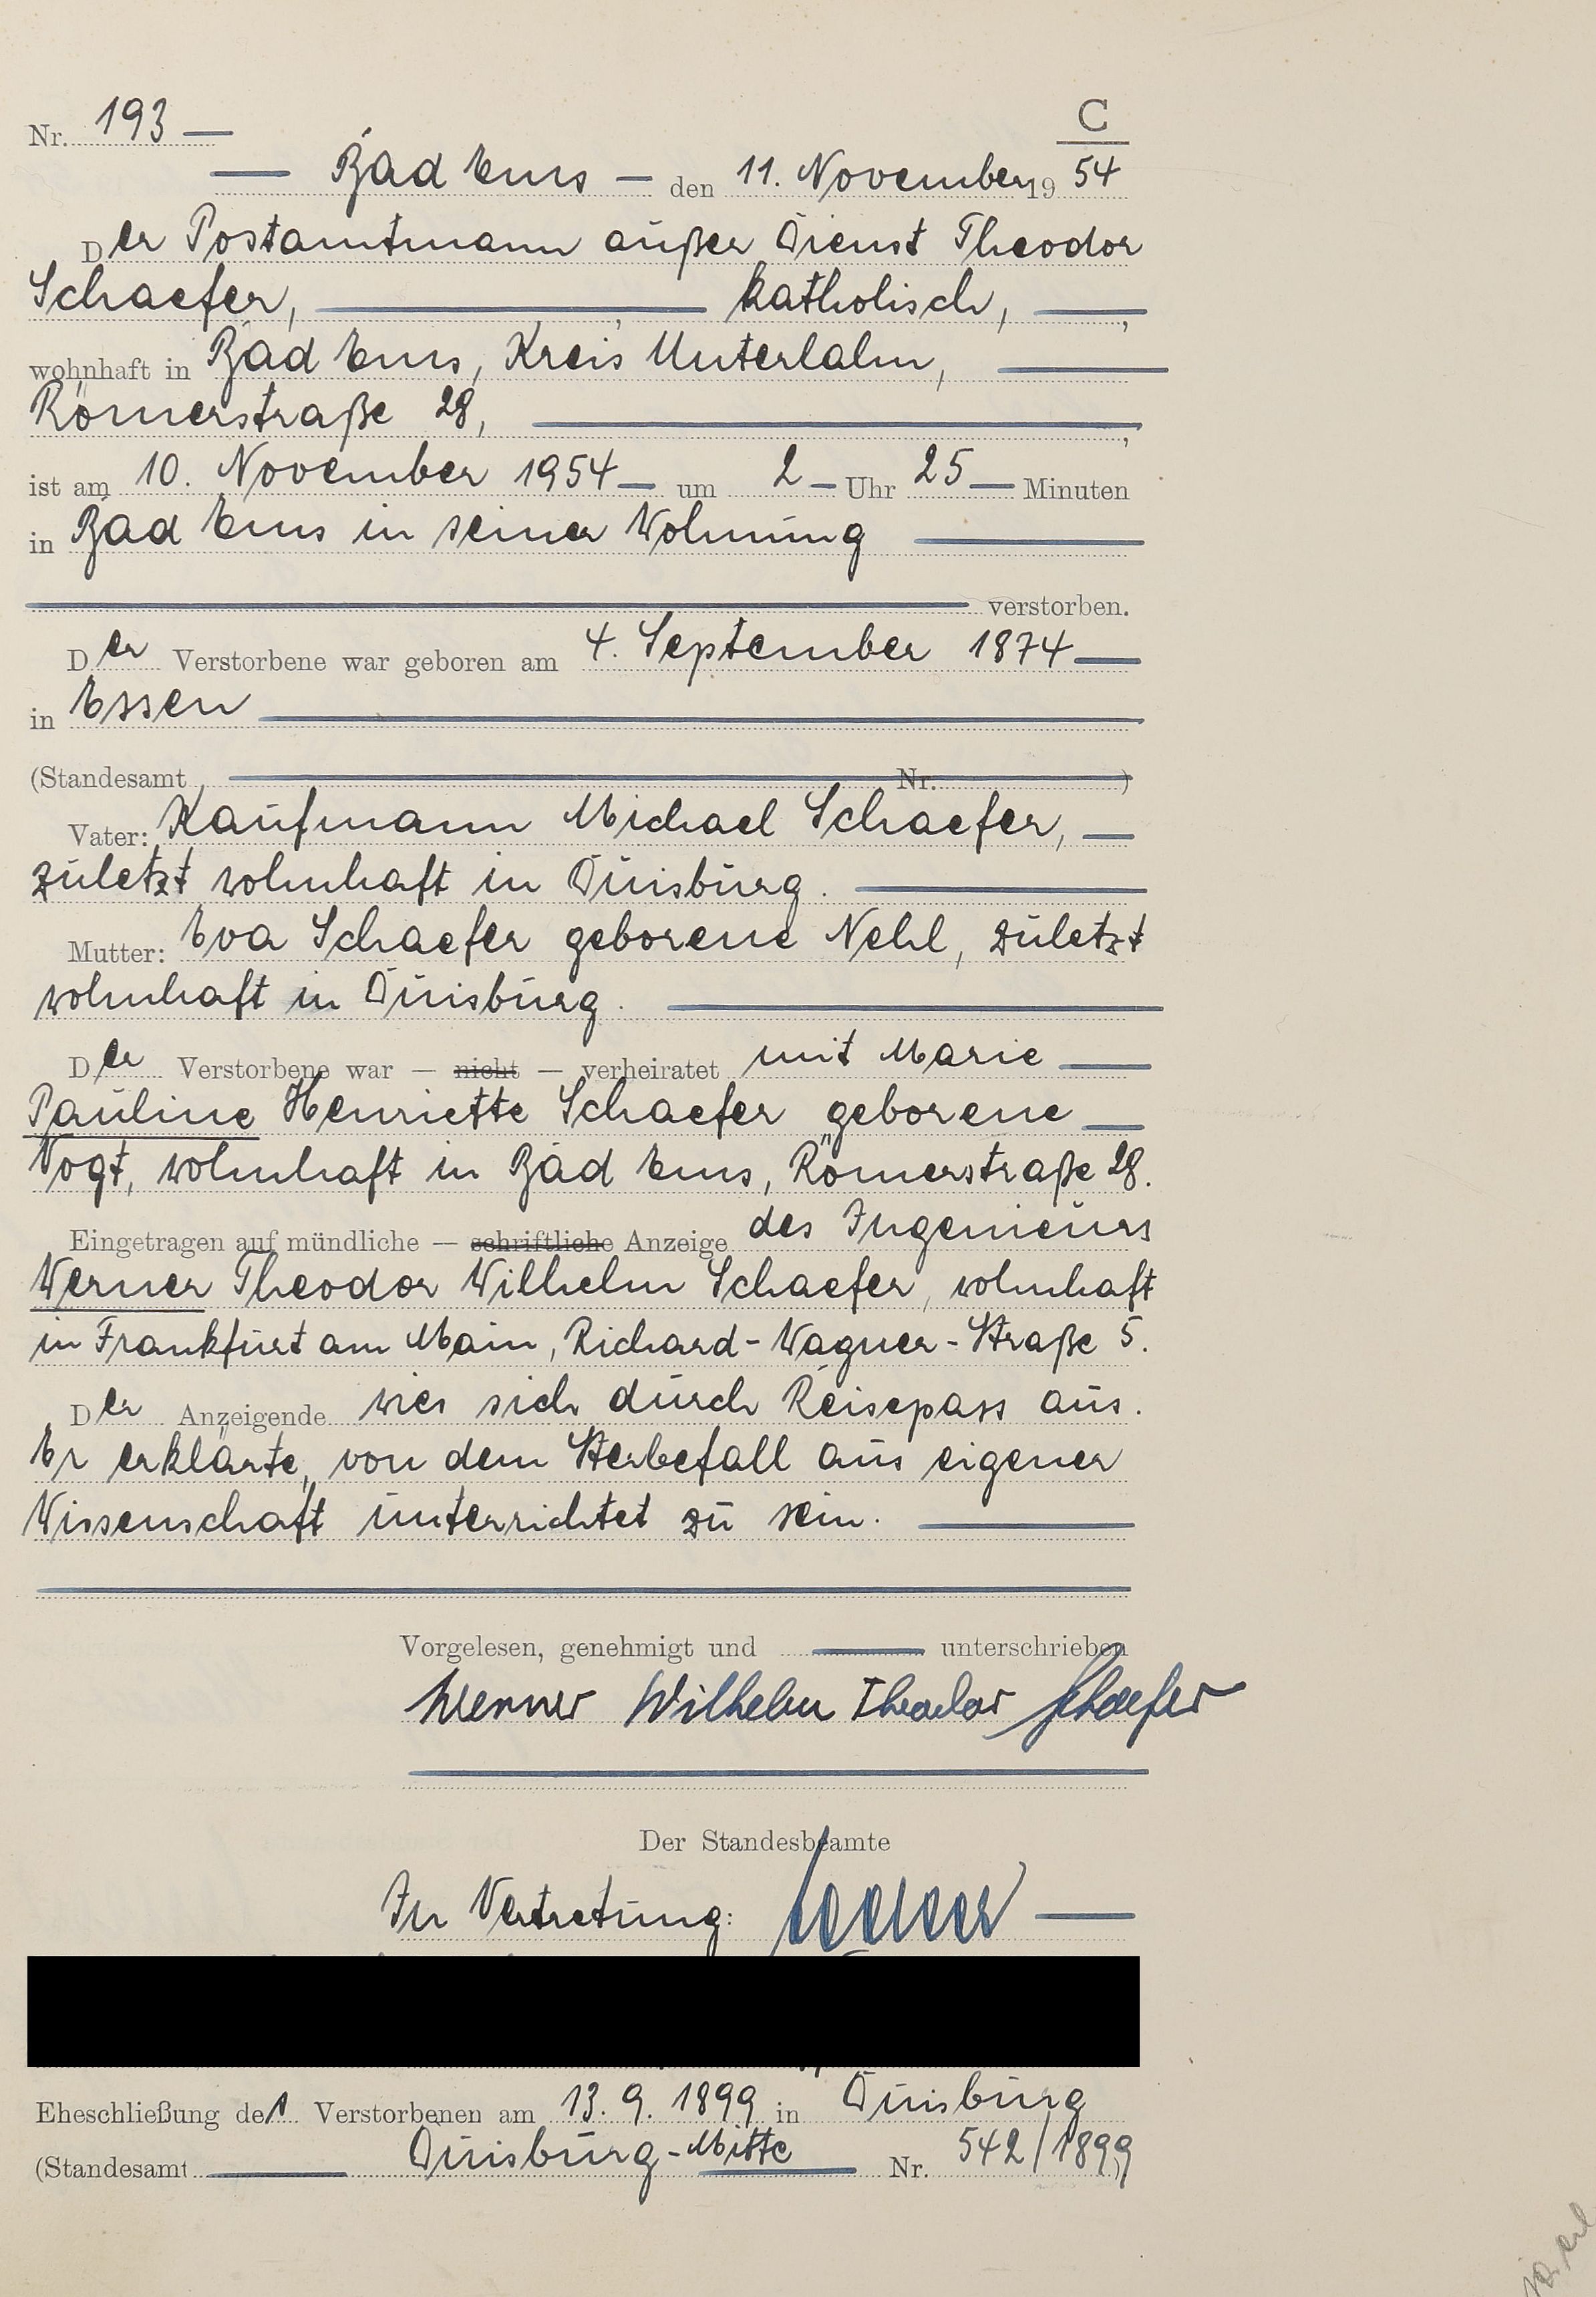 C
Nr. 193 —
— Bad Ems — den 11. November 19 54
Der Postamtmann außer Dienst Theodor
Schaefer, — , — katholisch, — ,
wohnhaft in Bad Ems, Kreis Unterlahn, —
Römerstraße 28, — ,
ist am 10. November 1954 — um 2 — Uhr 25 — Minuten
in Bad Ems in seiner Wohnung —
— verstorben.
Der Verstorbene war geboren am 4. September 1874 —
in Essen —
(Standesamt — Nr. — )
Vater: Kaufmann Michael Schaefer, —
zuletzt wohnhaft in Duisburg. —
Mutter: Eva Schaefer geborene Nehl, zuletzt
wohnhaft in Duisburg. —
Der Verstorbene war — nicht — verheiratet mit Marie —
Pauline Henriette Schaefer geborene —
Vogt, wohnhaft in Bad Ems, Römerstraße 28.
Eingetragen auf mündliche — schriftliche Anzeige des Ingenieurs
Werner Theodor Wilhelm Schaefer, wohnhaft
in Frankfurt am Main, Richard-Wagner-Straße 5.
Der Anzeigende wies sich durch Reisepass aus.
Er erklärte, von dem Sterbefall aus eigener
Wissenschaft unterrichtet zu sein. —
Vorgelesen, genehmigt und — unterschrieben
Werner Wilhelm Theodor Schaefer
Der Standesbeamte
In Vertretung:
Eheschließung des Verstorbenen am 13. 9. 1899 in Duisburg
(Standesamt — Duisburg-Mitte — Nr. 542/1899)